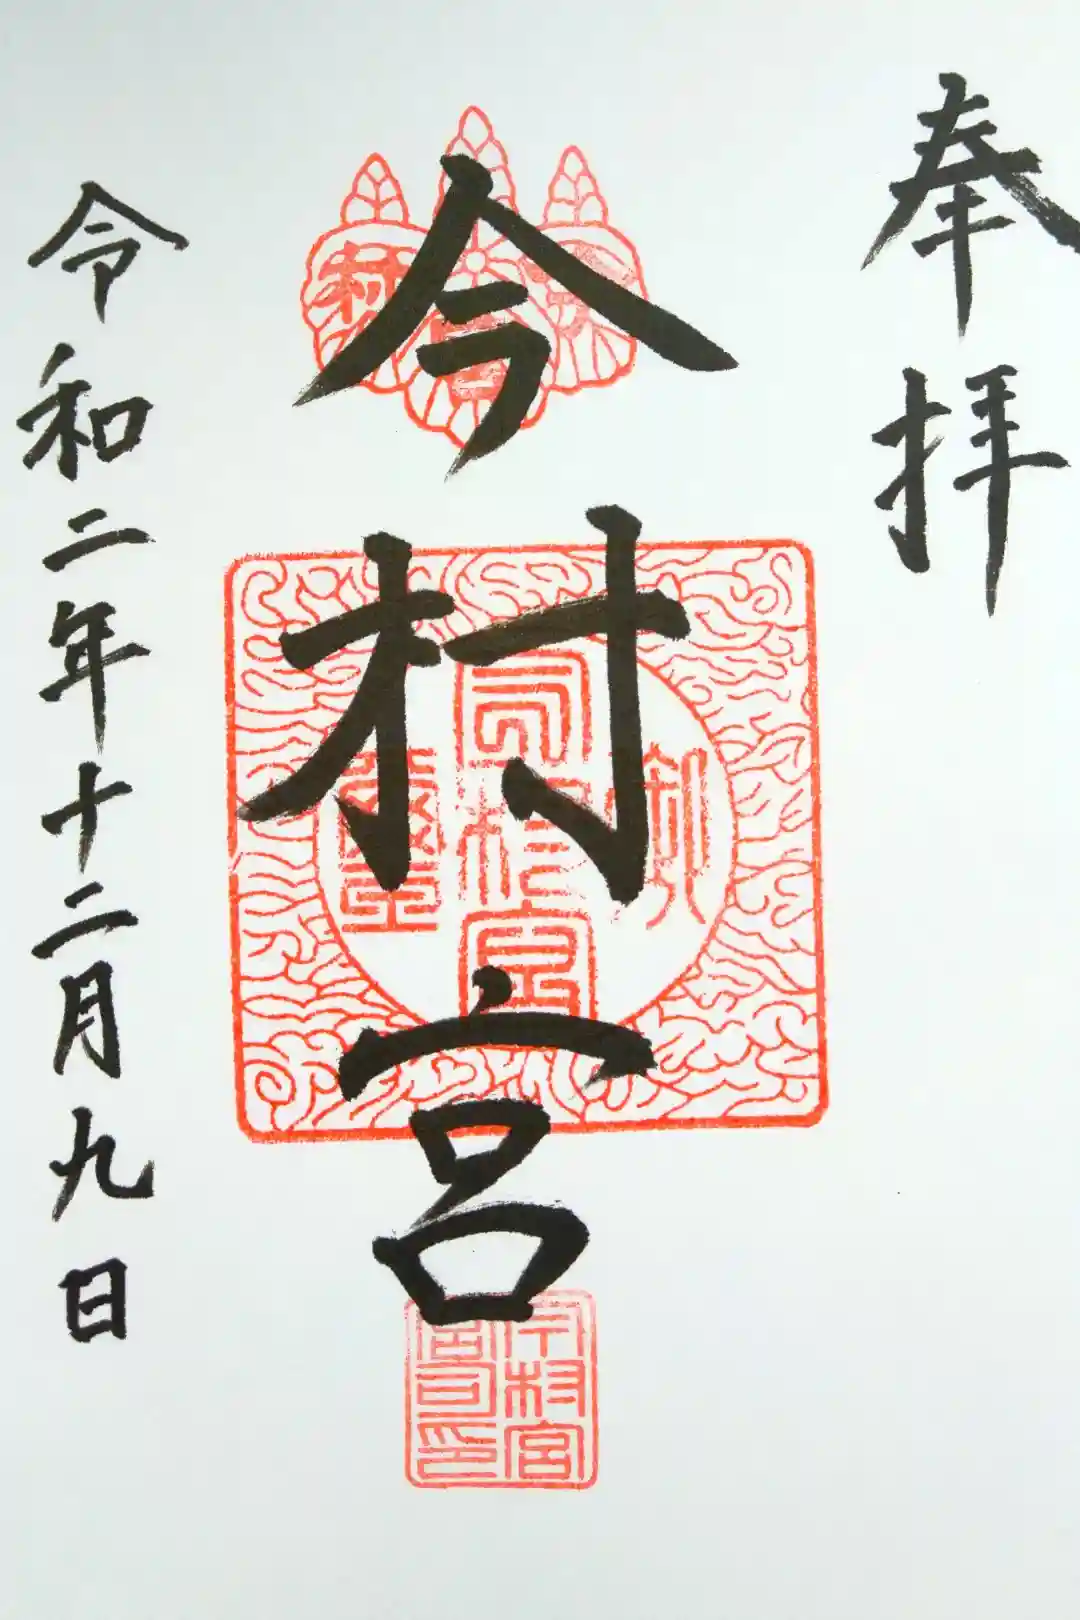 奉拝
今村宮
今村宮
宮司印
令和二年十二月九日